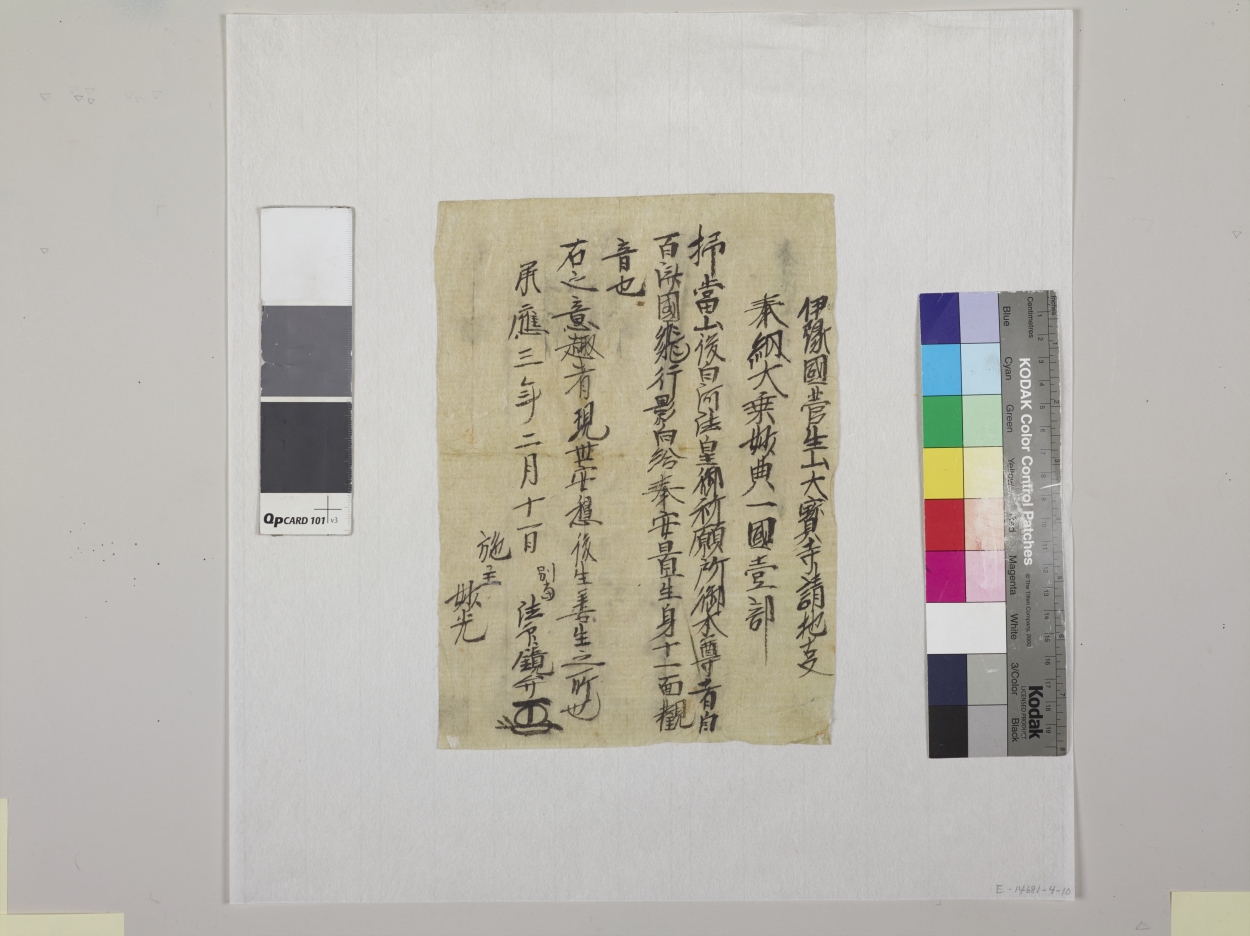 伊豫國菅生山大寳寺請地㕝
奉納大乗妙典一國壹部
抑當山後白河法皇御祈願所御本尊者自
百済國飛行影向給奉安置生身十一面觀
音也
右之意趣者現世安穏後生善生之所也
承應三年二月十一日
別當 法印鏡弁
施主
妙光
QPCARD 101 v3
Inches
Centimetres
KODAK Color Control Patches
© The Tiffen Company, 2000
Blue
Cyan
Green
Yellow
Red
Magenta
White
3/Color
Black
Kodak
LICENSED PRODUCT
E-14681-4-10